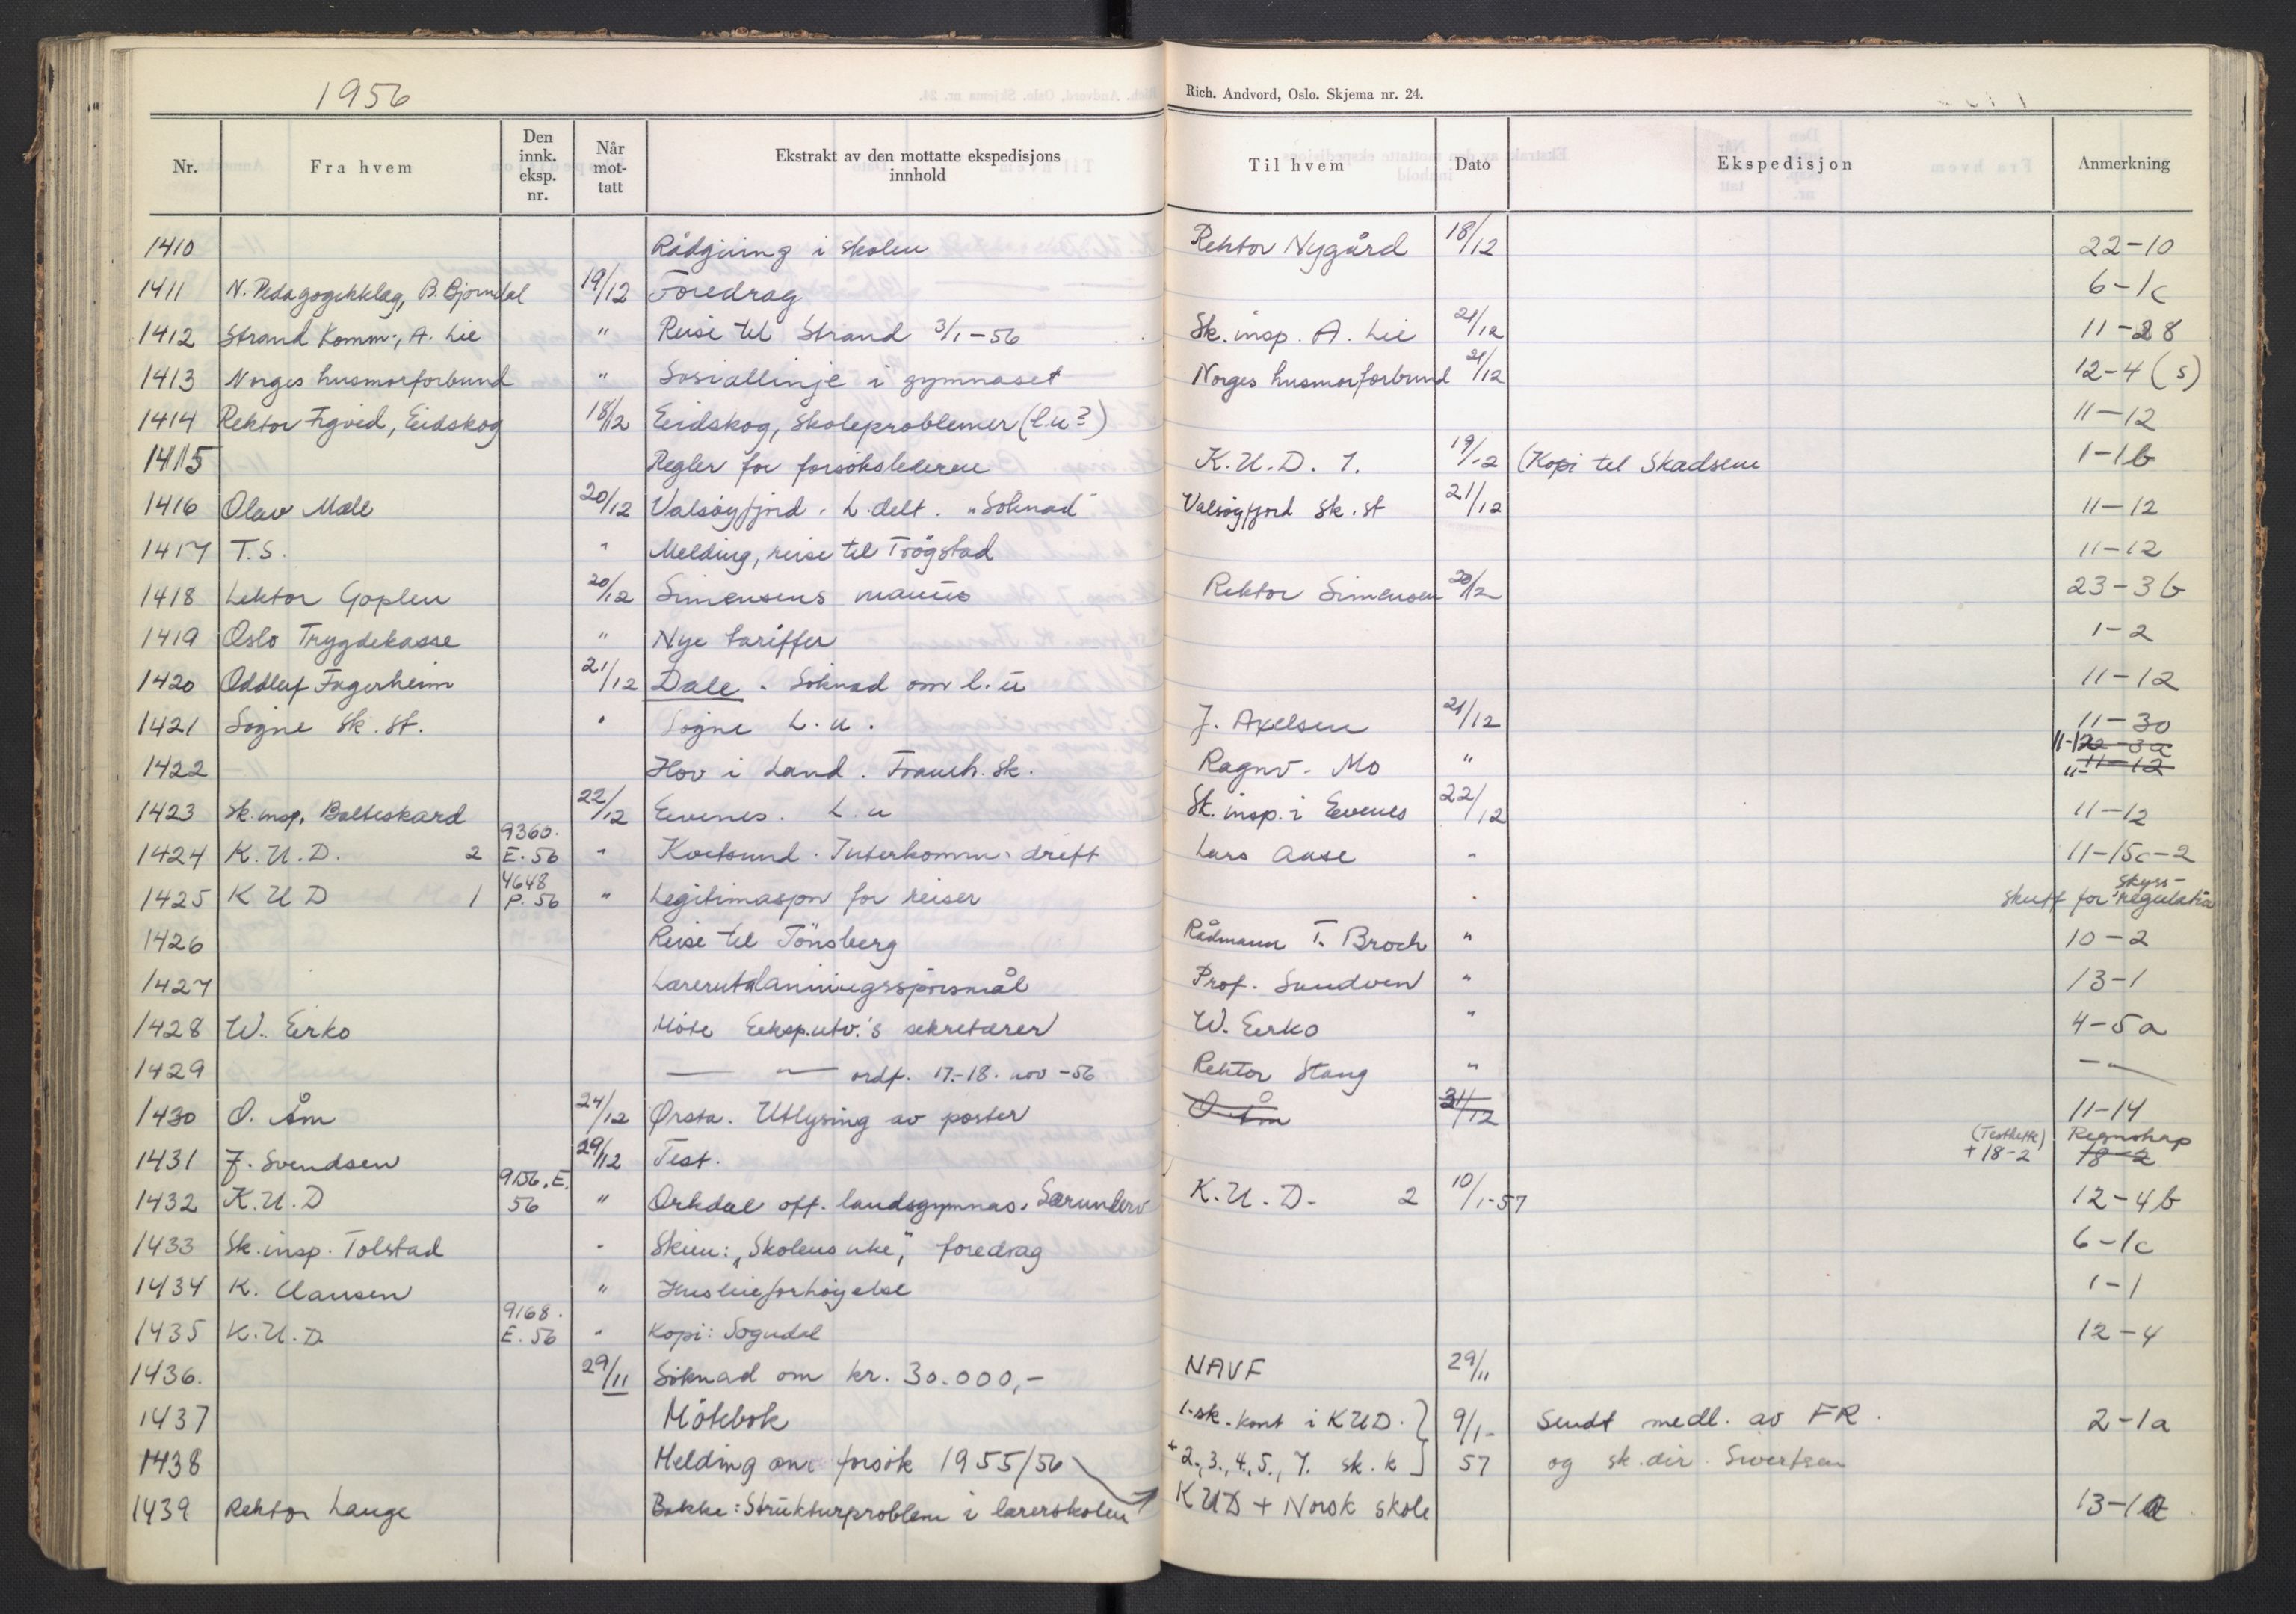 1956
Rich. Andvord, Oslo. Skjema nr. 24.
Nr. Fra hvem Den innk. eksp. nr. Når mot- tatt Ekstrakt av den mottatte ekspedisjons innhold Til hvem Dato Ekspedisjon Anmerkning
1410 Rådgiving i skolen Rektor Nygård 18/12 22-10
1411 N. Pedagogikklag, B. Bjørndal 19/12 Foredrag 6-1c
1412 Strand Komm., A. Lie " Reise til Strand 3/1-56 Sk. insp. A. Lie 21/12 11-28
1413 Norges husmorforbund " Sosiallinje i gymnaset Norges husmorforbund 21/12 12-4 (s)
1414 Rektor Eidskog 18/12 Eidskog, skoleproblemer (l.u?) 11-12
1415 Regler for forsøkslederen K.U.D. 1. 19/12 (Kopi til Skadsem 1-1b
1416 Olav Mæle 20/12 Valsøyfjord. L. delt. "Søknad" Valsøyfjord sk. st 21/12 11-12
1417 T.S. " Melding, reise til Trøgstad 11-12
1418 Lektor Goplen 20/12 Simensens manus Rektor Simensen 20/12 23-3b
1419 Oslo Trygdekasse " Nye tariffer 1-2
1420 Oddleif Fagerheim 21/12 Dale. Søknad om l.u 11-12
1421 Søgne sk. st. " Søgne L.u. J. Axelsen 21/12 11-30
1422 Hov i Land. Framh. sk. Ragnv. Mo " 11-12 22-3a
"- 11-12
1423 Sk. insp. Balteskard 22/12 Evenes. L.u Sk. insp. i Evenes 22/12 11-12
1424 K.U.D. 2 9360. E. 56 " Interkomm. drift Lars Aase " 11-15c-2
1425 K U D 1 4648 P. 56 " Legitimasjon for reiser " skuff for skyss- regulativ
1426 Reise til Tönsberg Rådmann T. Broch " 10-2
1427 Lærerutdanningsspörsmål Prof. Sundven " 13-1
1428 W. Eerko Møte Eeksp.utv.'s sekretærer W. Eerko " 4-5a
1429 — " — ordf. 17.-18. nov -56 Rektor Stang " — " —
1430 O. Åm 24/12 Ørsta. Utlysing av poster O. Åm 31/12 11-14
1431 J. Svendsen 29/12 Test. (Testhefte) + 18-2 Regnskap 18-2
1432 K.U.D 9156. E. 56 " Orkdal off. landsgymnas. Særunderv K.U.D. 2 10/1-57 12-4b
1433 Sk. insp. Tolstad " Skien: "Skolens uke", foredrag 6-1c
1434 K. Clausen " Husleieforhøyelse 1-1
1435 K.U.D 9168. E. 56 " Kopi: Sogndal 12-4
1436. 29/11 Søknad om kr. 30.000,- NAVF 29/11
1437 Mötebok 1. sk. kont i KUD. } 9/1- Sendt medl. av FR. 2-1a
1438 Melding om forsök 1955/56 + 2., 3., 4., 5., 7. sk. k ] 57 og sk. dir. Sivertsen
1439 Rektor Lange Bakke: Strukturproblem i lærerskolen KUD + Norsk skole 13-1a